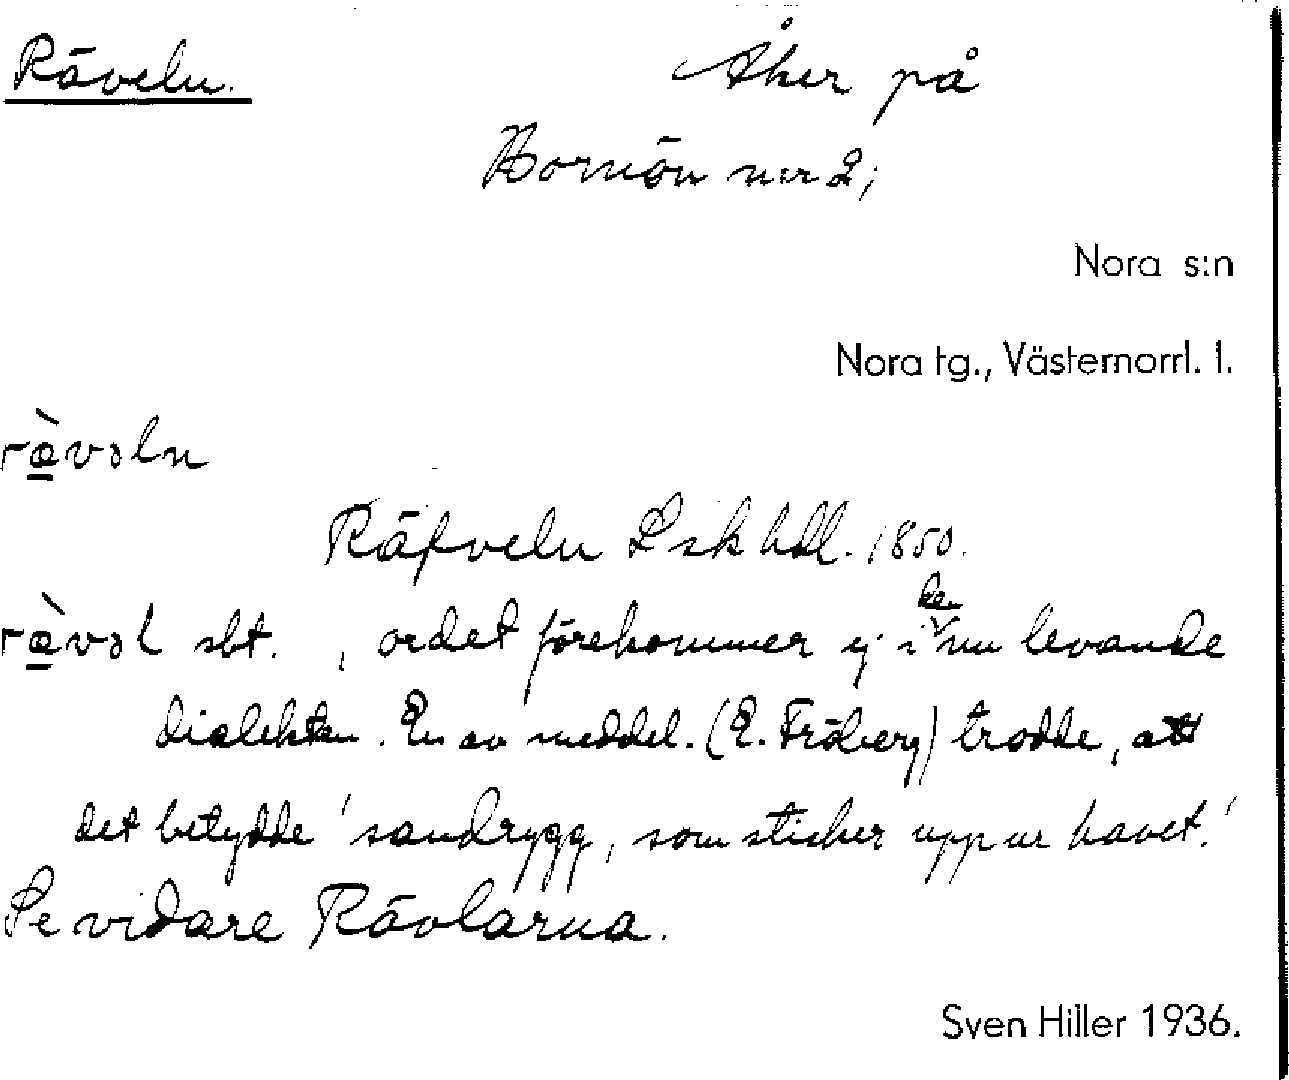 Räveln. Åker på
Hornön nr 2;
Nora s:n
Nora tg., Västernorrl. l.
ræ̀vəln
Räfveln Lskhdl. 1850.
ræ̀vəl sbt. , ordet förekommer ej i den nu levande
dialekten. En av meddel. (E. Fröberg) trodde, att
det betydde 'sandrygg, som sticker upp ur havet.'
Se vidare Rävlarna.
Sven Hiller 1936.